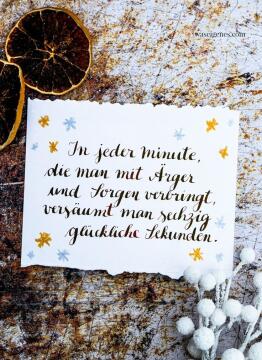 waseigenes.com
In jeder Minute,
die man mit Ärger
und Sorgen verbringt,
versäumt man sechzig
glückliche Sekunden.